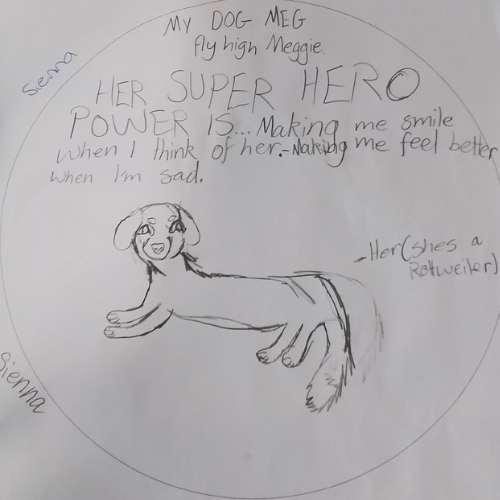 MY DOG MEG
fly high Meggie.
Sienna
HER SUPER HERO
POWER IS... Making me smile
when I think of her.-Making me feel better
when I'm sad.
-Her(shes a
Rottweiler)
Sienna